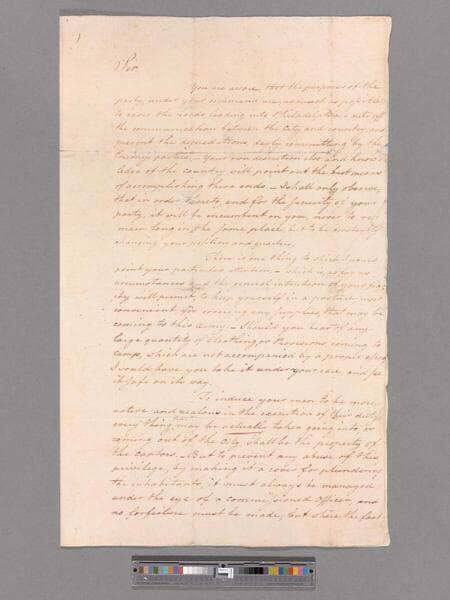 Sir,
You are aware that the purposes of the
party, under your command are, as much as possible
to cover the roads leading into Philadelphia — cut off
the communication between the City and country, and
prevent the depredations, dayly committing by the
Enemys parties — Your own discretion and know-
ledge of the country will point out the best means
of accomplishing these ends — I shall only observe,
that in order thereto, and for the security of your
party, it will be incumbent on you, never to re-
main long in the same place, but to be constantly
changing your position and quarters.
There is one thing to which I would
point your particular attention — which is, as far as
circumstances and the general intention of your par-
ty will permit, to keep yourself in a posture most
convenient for covering any supplies, that may be
coming to this Army — Should you hear of any
large quantity of Cloathing, or Provisions coming to
Camp, which are not accompanied by a proper escort
I would have you take it under your care, and see
it safe on its way.
To induce your men to be more
active and zealous in the execution of their duty,
every thing may be actually taken going into, or
coming out of the City, shall be the property of
the captors — But to prevent any abuse of this
privilege, by making it a cover for plundering
the inhabitants, it must always be managed
under the eye of a commissioned Officer, and
no forfeiture must be made, but where the fact